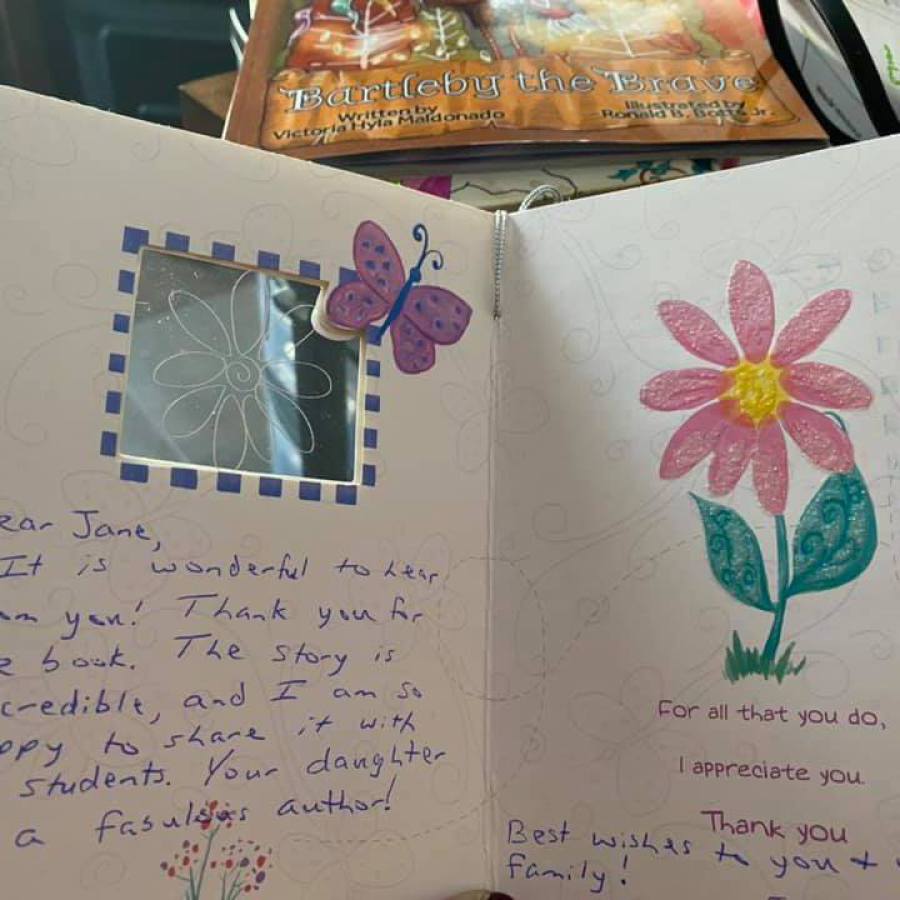 Bartleby the Brave
Written by
Victoria Hyla Maldonado
Illustrated by
Ronald B. Botts Jr.
ear Jane,
It is wonderful to hear
om you! Thank you for
e book. The story is
credible, and I am so
ppy to share it with
students. Your daughter
a fasulous author!
For all that you do,
I appreciate you.
Thank you
Best wishes to you +
family!